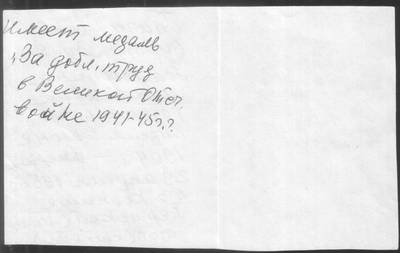 имеет медаль
"За добл. труд
в Великой Отеч.
войне 1941-45г.г.